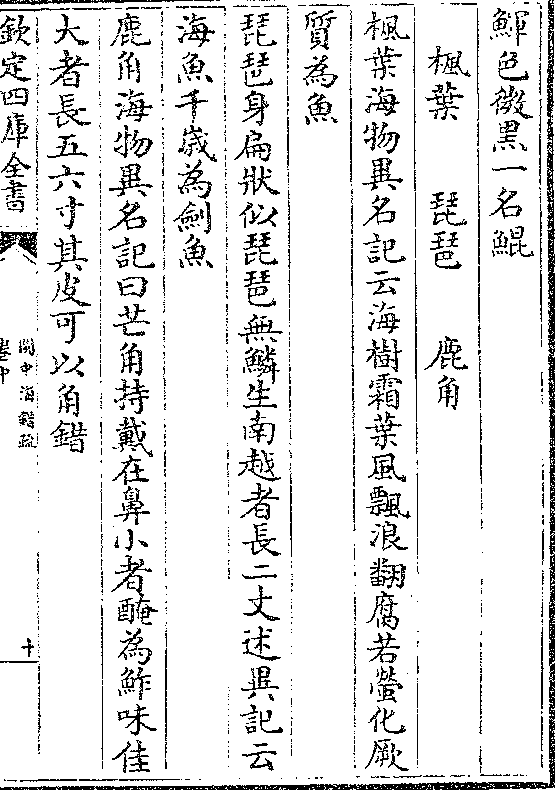 鯶色微黑一名鯤
楓葉　琵琶　鹿角
楓葉海物異名記云海樹霜葉風飄浪翻腐若螢化厥
質為魚
琵琶身扁狀似琵琶無鱗生南越者長二丈述異記云
海魚千歲為劍魚
鹿角海物異名記曰芒角持戴在鼻小者醃為鮓味佳
大者長五六寸其皮可以角錯
欽定四庫全書
閩中海錯疏
卷中
十